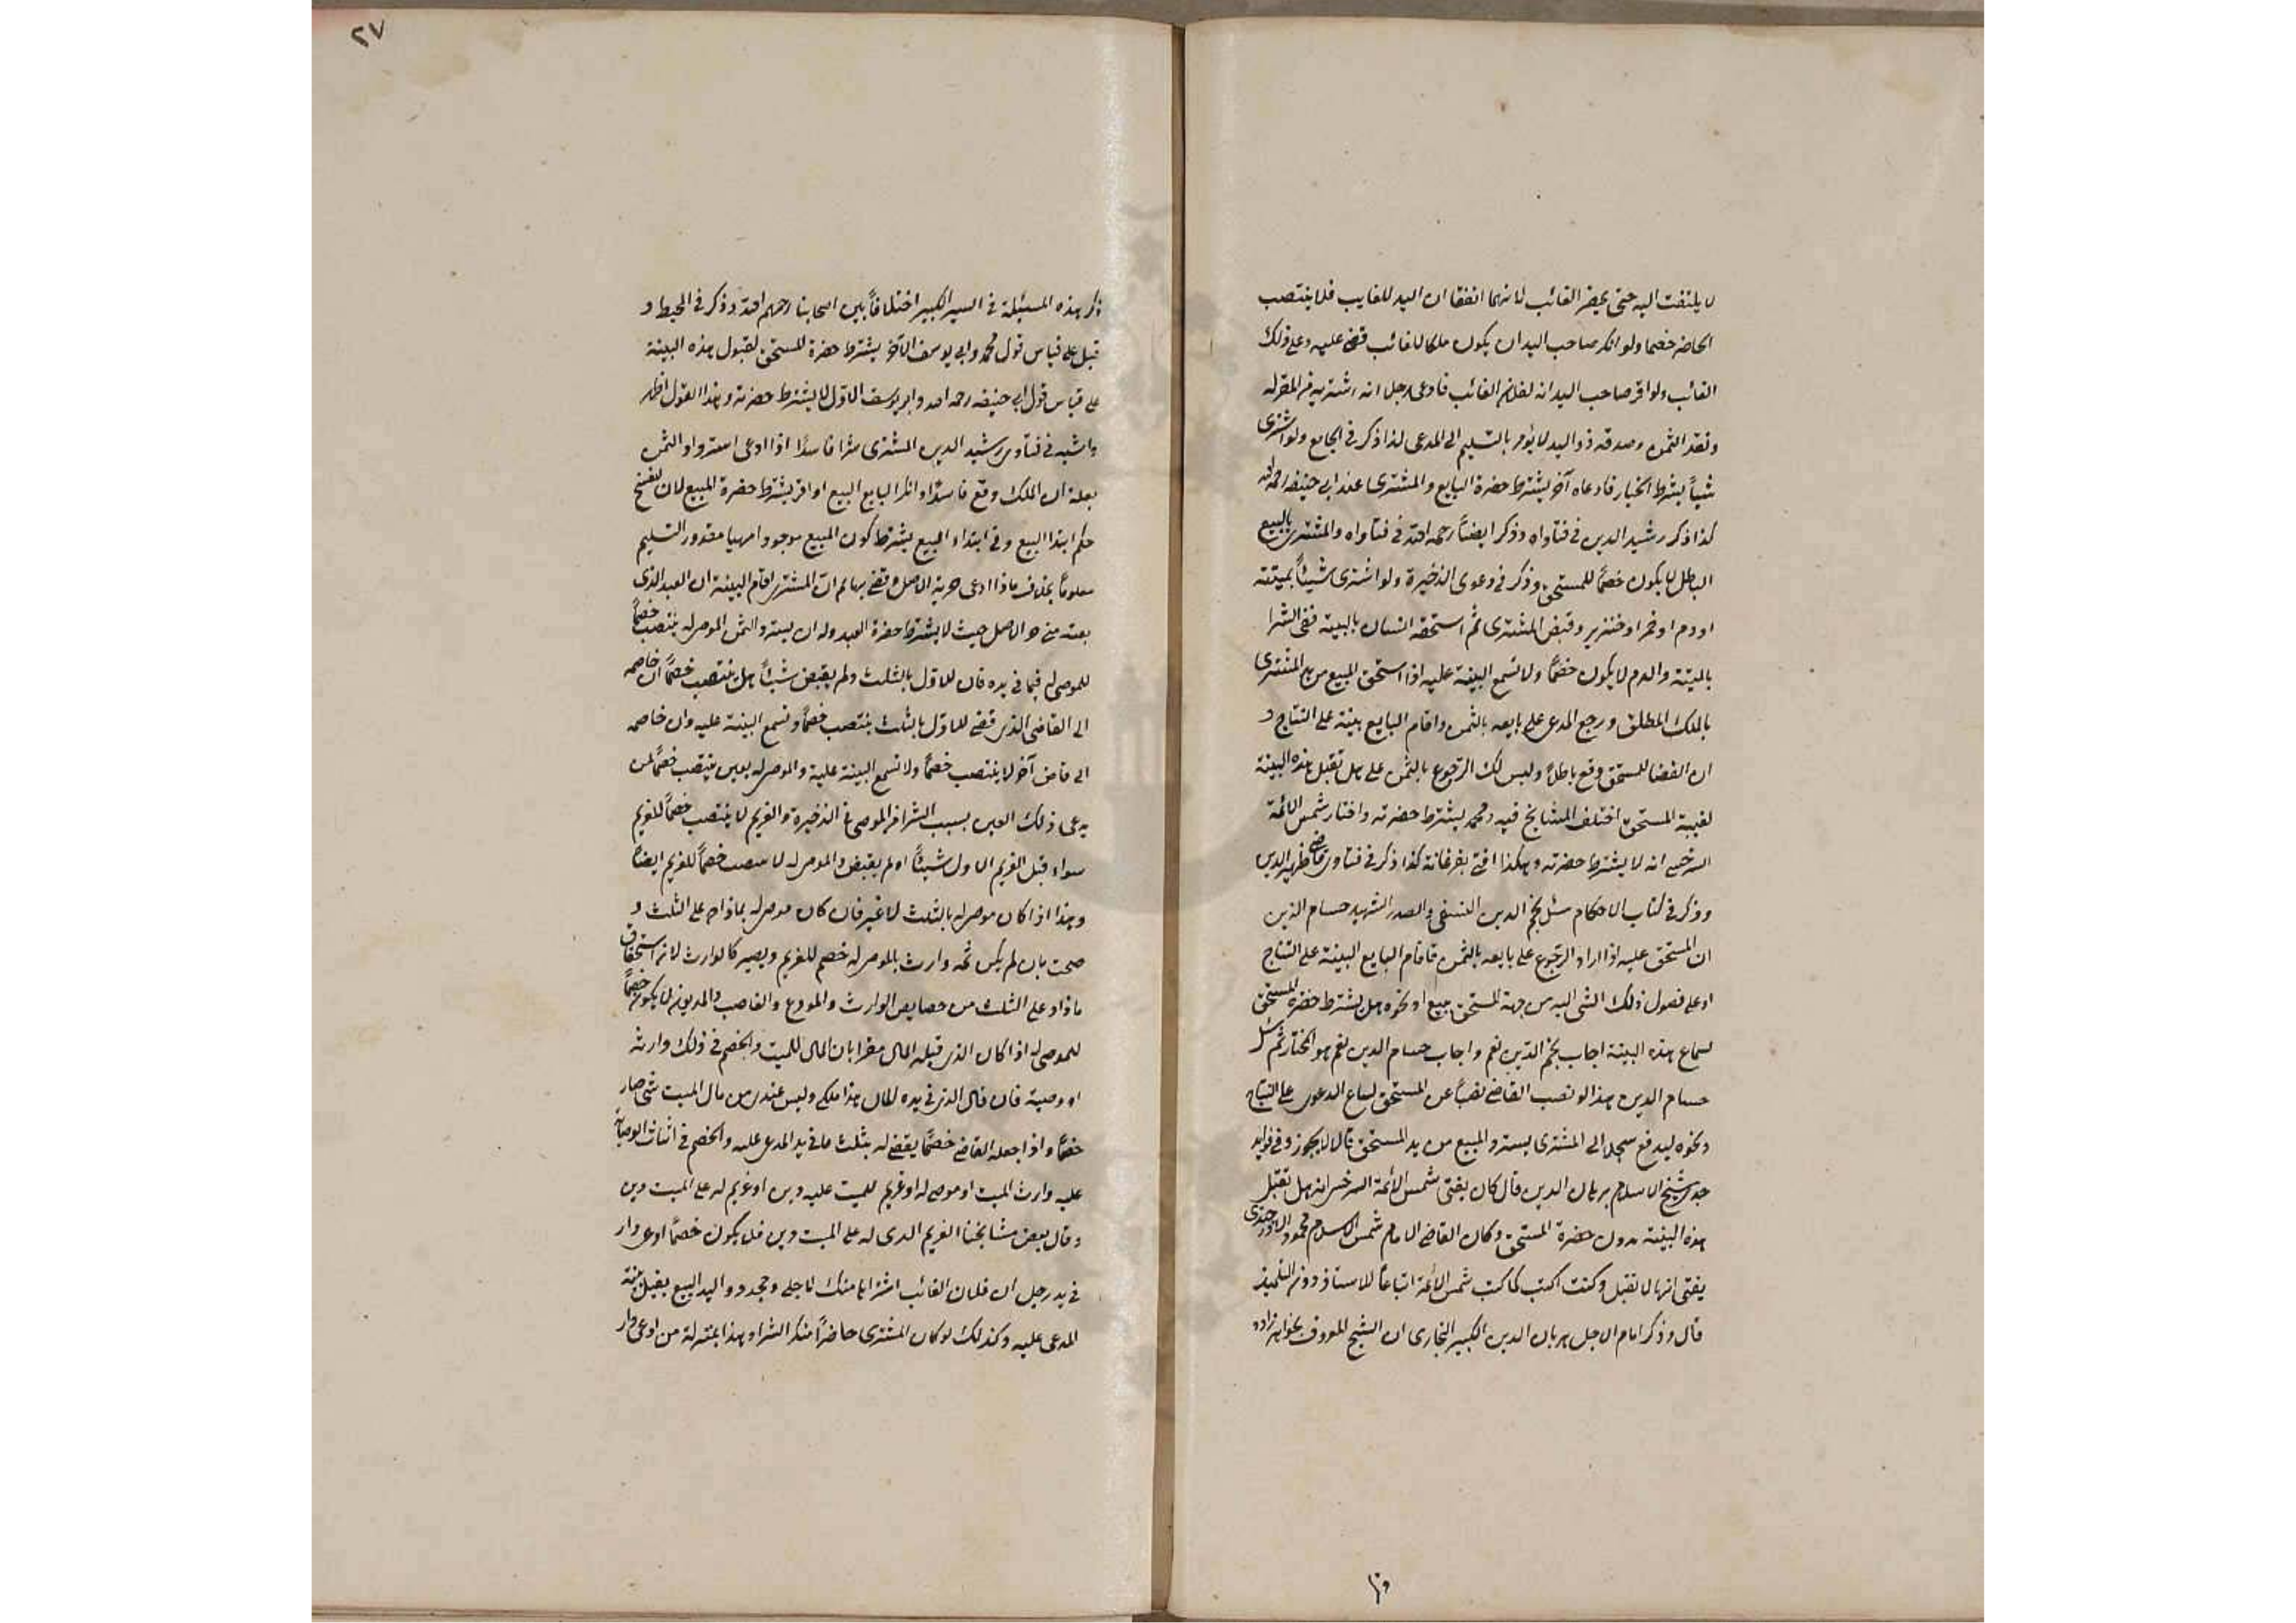 لا يلتفت اليه حتى يحضر الغائب لانهما اتفقا ان اليد للغايب فلا ينتصب
الحاضر خصما ولو انكر صاحب اليد ان يكون ملكا للغائب قضى عليه وعلى ذلك
الغائب ولو اقر صاحب اليد انه لفلان الغائب فادعى رجل انه اشتريه من المقر له
ونقد الثمن وصدقه ذو اليد لا يؤمر بالتسليم الى المدعى لذا ذكر في الجامع ولو اشترى
شيئاً بشرط الخيار فادعاه آخر يشترط حضرة البايع والمشترى عند ابي حنيفه رحمه الله
كذا ذكر رشيد الدين في فتاواه وذكر ايضاً رحمه الله في فتاواه والمشترى بالبيع
الباطل لا يكون خصمًا للمستحق وذكر في دعوى الذخيرة ولو اشترى شيئاً بميتته
او دم او خمر او خنزير وقبض المشترى ثم استحقه انسان بالبينة ففى الشرا
بالميتة والدم لا يكون خصمًا ولا تسمع البينة عليه اذا استحق المبيع من يد المشترى
بالملك المطلق ورجع المدعى على بايعه بالثمن واقام البايع بينة على النتاج و
ان القضا للمستحق وقع باطلاً وليس لك الرجوع بالثمن على هل تقبل هذه البينة
لغيبة المستحق اختلف المشايخ فيه ومحمد يشترط حضرته واختار شمس الائمة
السرخسي انه لا يشترط حضرته وهكذا افتى بفرغانة كذا ذكر في فتاوى قاضى ظهير الدين
وذكر في كتاب الاحكام سئل نجم الدين النسفى والصدر الشهيد حسام الدين
ان المستحق عليه اذا اراد الرجوع على بايعه بالثمن فاقام البايع البينة على النتاج
او على فصول ذلك الشى اليه من جهة المستحق ببيع او نحوه هل يشترط حضرة المستحق
لسماع هذه البينة اجاب نجم الدين نعم واجاب حسام الدين نعم هو المختار ثم سئل
حسام الدين هذا لو نصب القاضى نصباً عن المستحق لسماع الدعوى على النتاج
ونحوه ليدفع سجلا الى المشترى يسترد المبيع من يد المستحق قال لا يجوز وفى فوايد
جدى شيخ الاسلام برهان الدين قال كان يفتى شمس الائمة السرخسى انه هل تقبل
هذه البينة بدون حضرة المستحق وكان القاضى الامام شمس الاسلام محمود الاوزجندى
يفتى انها لا تقبل وكنت اكتب كما كتب شمس الائمة اتباعاً للاستاذ دون التلميذ
قال وذكر امام الاجل برهان الدين الكبير البخارى ان الشيخ المعروف بخواهرزاده
٢٧
ذكر هذه المسئلة في السير الكبير اختلافاً بين اصحابنا رحمهم الله وذكر في المحيط و
قيل على قياس قول محمد وابى يوسف الآخر يشترط حضرة المستحق لقبول هذه البينة
على قياس قول ابى حنيفه رحمه الله وابى يوسف الاول لا يشترط حضرته وهذا القول اظهر
واشبه في فتاوى رشيد الدين المشترى شرا فاسدًا اذا ادعى استرداد الثمن
بعلة ان الملك وقع فاسدًا وانكر البايع البيع او اقر يشترط حضرة المبيع لان لفسخ
حكم ابتدا البيع وفى ابتداء البيع يشترط كون المبيع موجودا مهيا مقدور التسليم
معلومًا بخلاف ماذا ادعى حرية الاصل وقضى بها ثم ان المشترى اقام البينة ان العبد الذى
بعته منى حر الاصل حيث لا يشترط حضرة العبد وله ان يسترد الثمن الموصى له ينتصب خصمًا
للموصى له فيما في يده فان للاول بالثلث ولم يقبض شيئاً هل ينتصب خصمًا ان خاصمه
الى القاضى الذى قضى للاول بالثلث ينتصب خصمًا وتسمع البينة عليه وان خاصمه
الى قاض آخر لا ينتصب خصمًا ولا تسمع البينة عليه والموصى له بعين ينتصب خصمًا لمن
يدعى ذلك العين بسبب الشرا من الموصى في الذخيرة والغريم لا ينتصب خصمًا للغريم
سواء قبل الغريم الاول شيئاً او لم يقبض والموصى له لا ينتصب خصماً للغريم ايضاً
وهذا اذا كان موصى له بالثلث لا غير فان كان موصى له بما زاد على الثلث و
صحت بان لم يكن ثمه وارث بالموصى له خصم للغريم ويصير كالوارث لانه استحقاق
ما زاد على الثلث من خصايص الوارث والمودع والغاصب والمديون لا يكون خصمًا
للموصى له اذا كان الذى قبله المال مقرا بان المال للميت والخصم في ذلك وارثه
او وصيه فان قال الذى في يده المال هذا ملكى وليس عندى من مال الميت شى صار
خصمًا واذا جعله القاضى خصمًا يقضى له بثلث ما في يد المدعى عليه والخصم في اثبات الوصاية
عليه وارث الميت او موصى له او غريم للميت عليه دين او غريم له على الميت دين
وقال بعض مشايخنا الغريم الذى له على الميت دين فلا يكون خصمًا ادعى دار
في يد رجل ان فلان الغائب اشتراها منك لاجلى وجحد ذو اليد البيع يقبل بينة
المدعى عليه وكذلك لو كان المشترى حاضراً منكر الشراء وهذا بمنزلة من ادعى دار